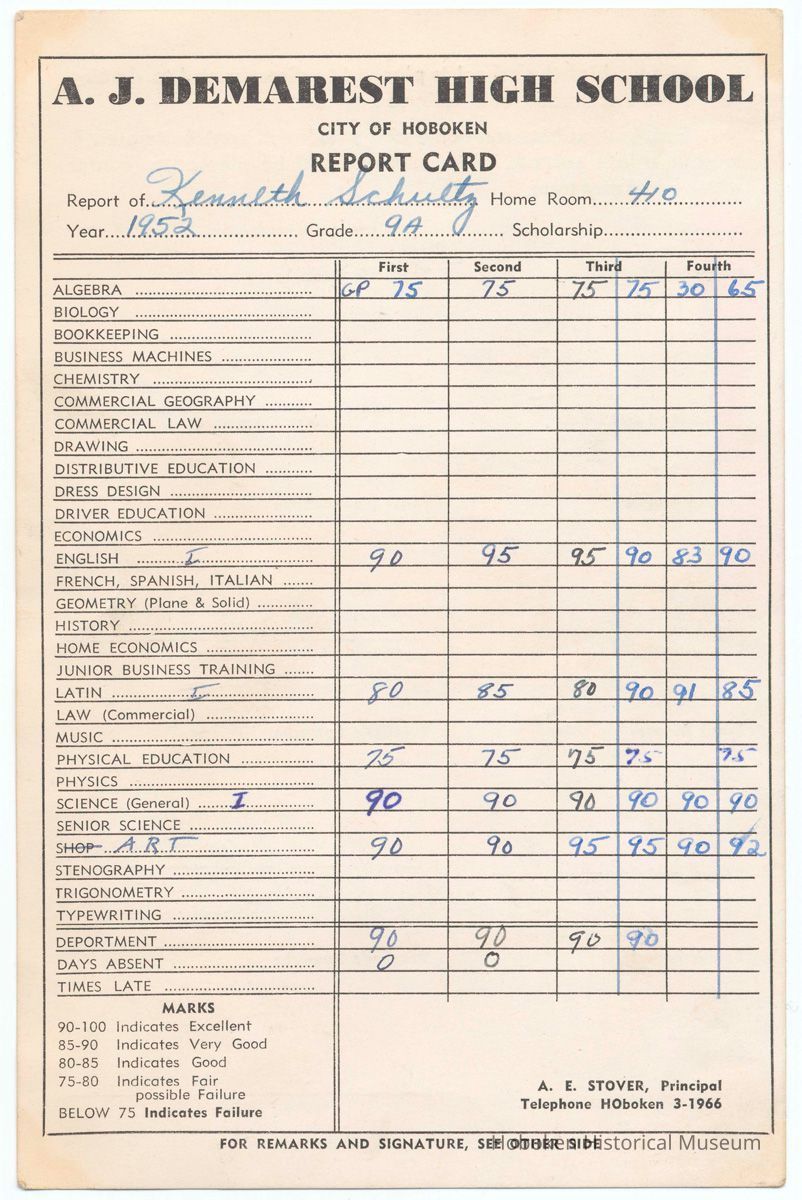 A. J. DEMAREST HIGH SCHOOL
CITY OF HOBOKEN
REPORT CARD
Report of Kenneth Schultz Home Room 410
Year 1952 Grade 9A Scholarship
First Second Third Fourth
ALGEBRA GP 75 75 75 75 30 65
BIOLOGY
BOOKKEEPING
BUSINESS MACHINES
CHEMISTRY
COMMERCIAL GEOGRAPHY
COMMERCIAL LAW
DRAWING
DISTRIBUTIVE EDUCATION
DRESS DESIGN
DRIVER EDUCATION
ECONOMICS
ENGLISH I 90 95 95 90 83 90
FRENCH, SPANISH, ITALIAN
GEOMETRY (Plane & Solid)
HISTORY
HOME ECONOMICS
JUNIOR BUSINESS TRAINING
LATIN I 80 85 80 90 91 85
LAW (Commercial)
MUSIC
PHYSICAL EDUCATION 75 75 75 75 75
PHYSICS
SCIENCE (General) I 90 90 90 90 90 90
SENIOR SCIENCE
SHOP ART 90 90 95 95 90 92
STENOGRAPHY
TRIGONOMETRY
TYPEWRITING
DEPORTMENT 90 90 90 90
DAYS ABSENT 0 0
TIMES LATE
MARKS
90-100 Indicates Excellent
85-90 Indicates Very Good
80-85 Indicates Good
75-80 Indicates Fair
possible Failure
BELOW 75 Indicates Failure
A. E. STOVER, Principal
Telephone HOboken 3-1966
FOR REMARKS AND SIGNATURE, SEE OTHER SIDE
Hoboken Historical Museum